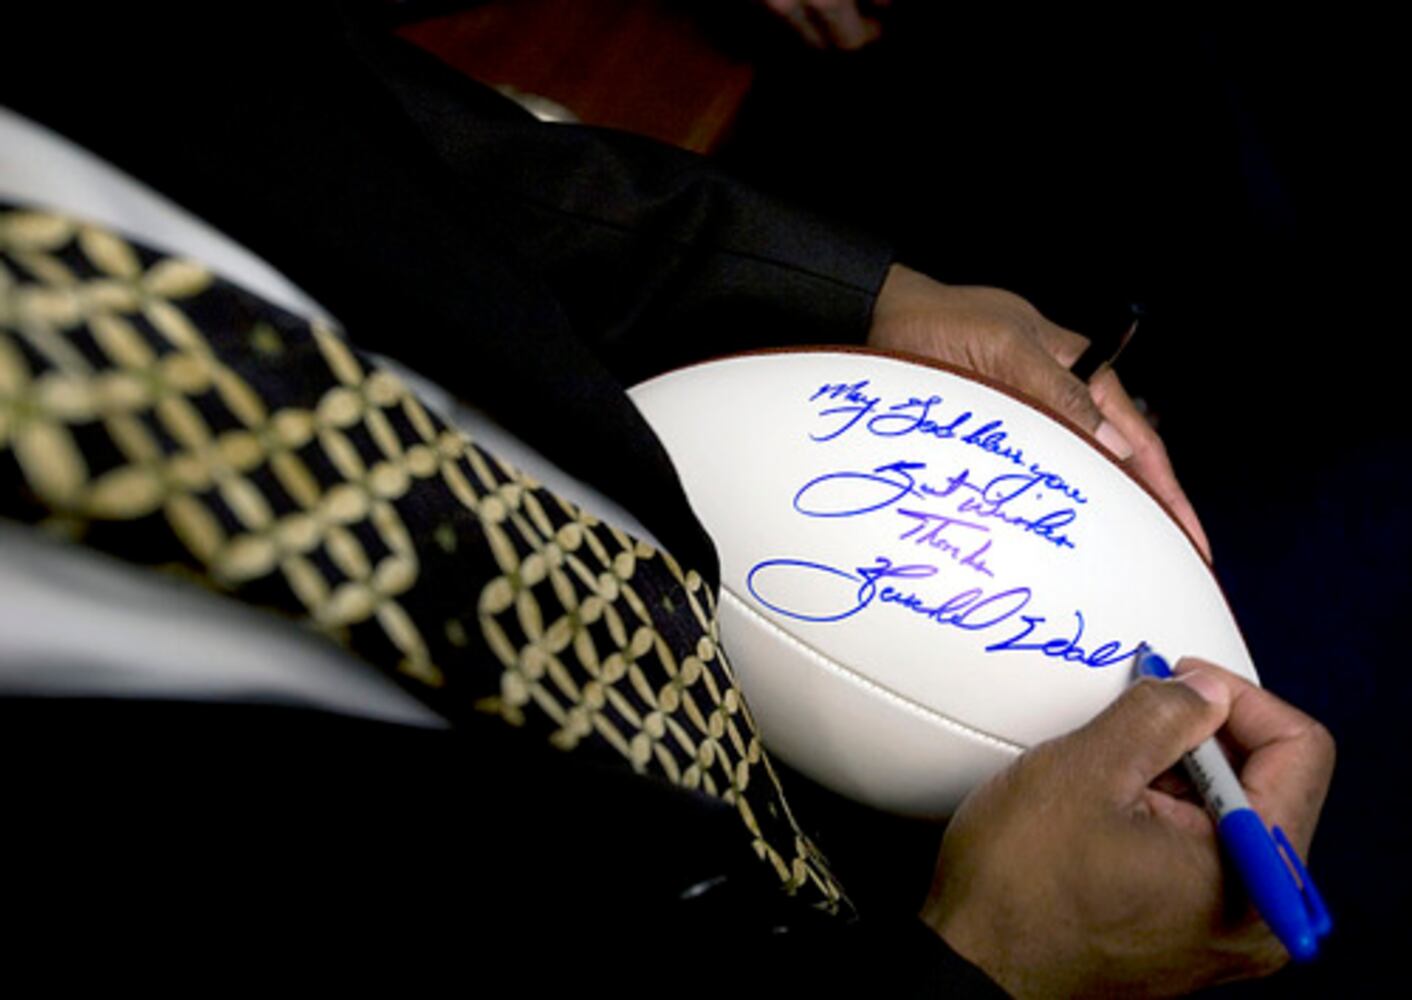 May God bless you
Best Wishes
Thanks
Herschel Wal